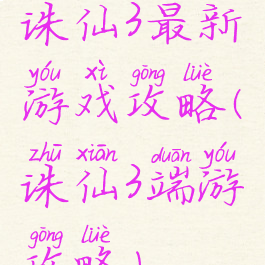 诛仙3最新
yóu xì gōng lüè
游戏攻略(
zhū xiān duān yóu
诛仙3端游
gōng lüè
攻略)